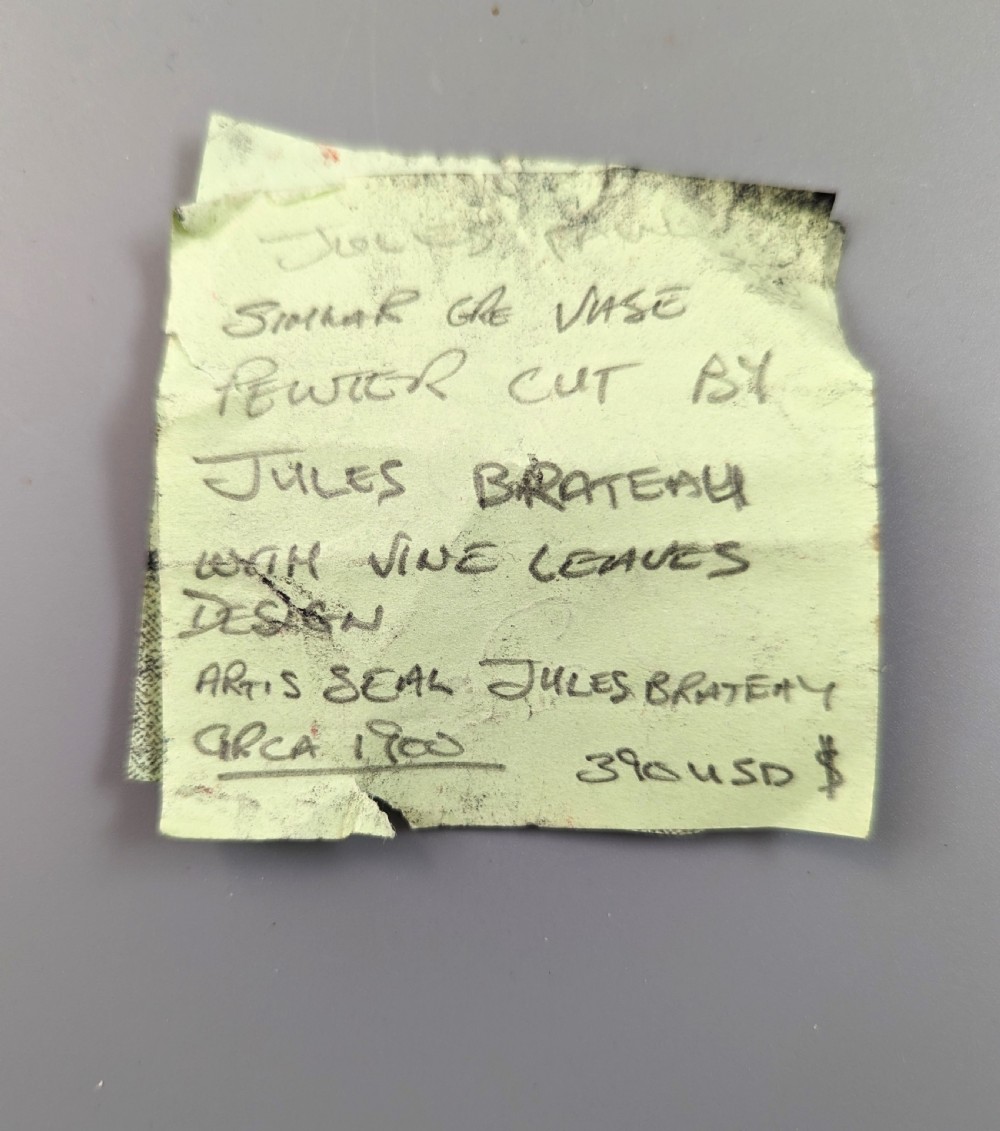 JULES
SIMILAR VASE
PEWTER CUT BY
JULES BRATEAU
WITH VINE LEAVES
DESIGN
ARTIS SEAL JULES BRATEAU
CIRCA 1900
390 USD $